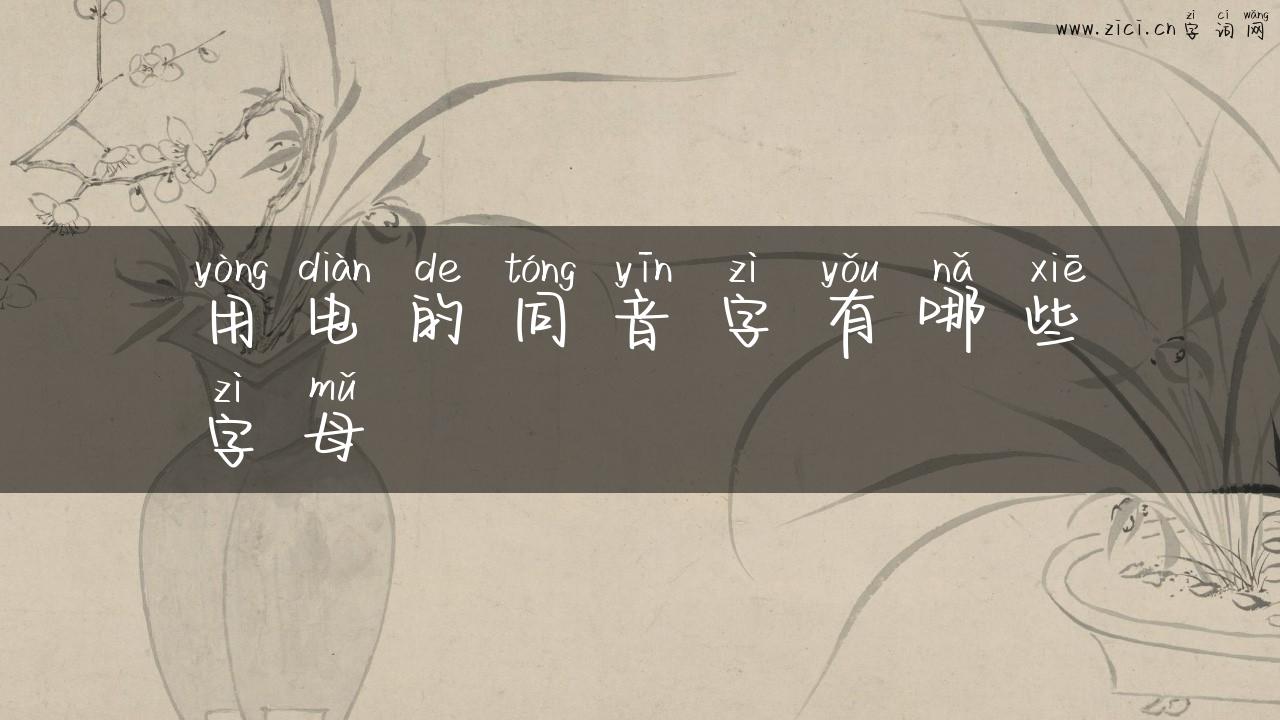 zì cí wǎng
www.zici.cn字词网
yòng diàn de tóng yīn zì yǒu nǎ xiē
用电的同音字有哪些
zì mǔ
字母